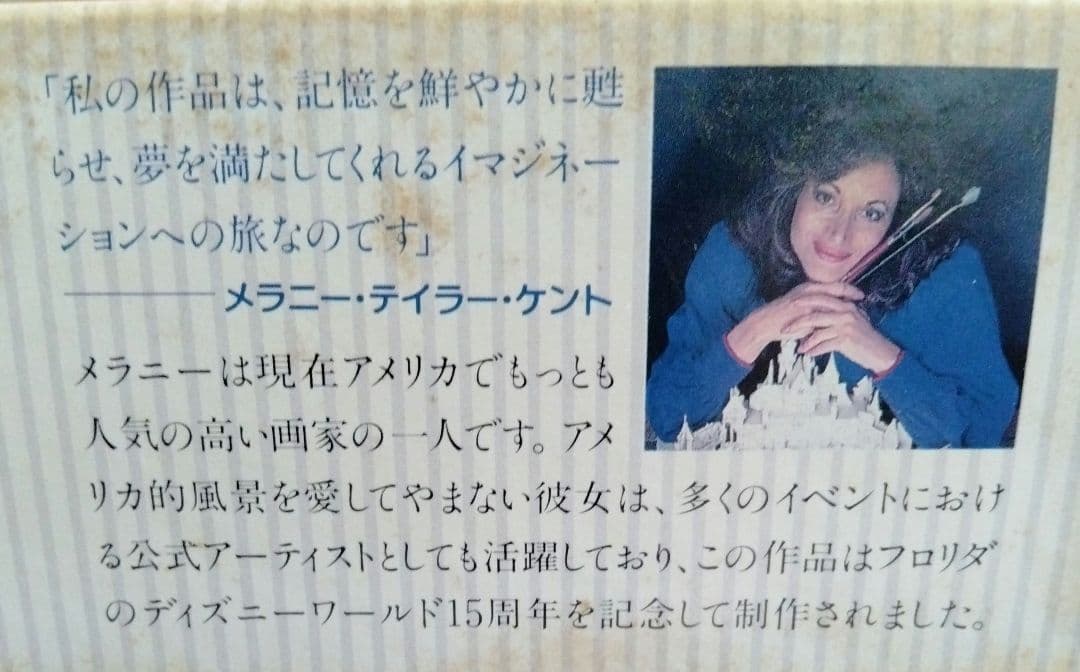 「私の作品は、記憶を鮮やかに甦
らせ、夢を満たしてくれるイマジネー
ションへの旅なのです」
――メラニー・テイラー・ケント
メラニーは現在アメリカでもっとも
人気の高い画家の一人です。アメ
リカ的風景を愛してやまない彼女は、多くのイベントにおけ
る公式アーティストとしても活躍しており、この作品はフロリダ
のディズニーワールド15周年を記念して制作されました。